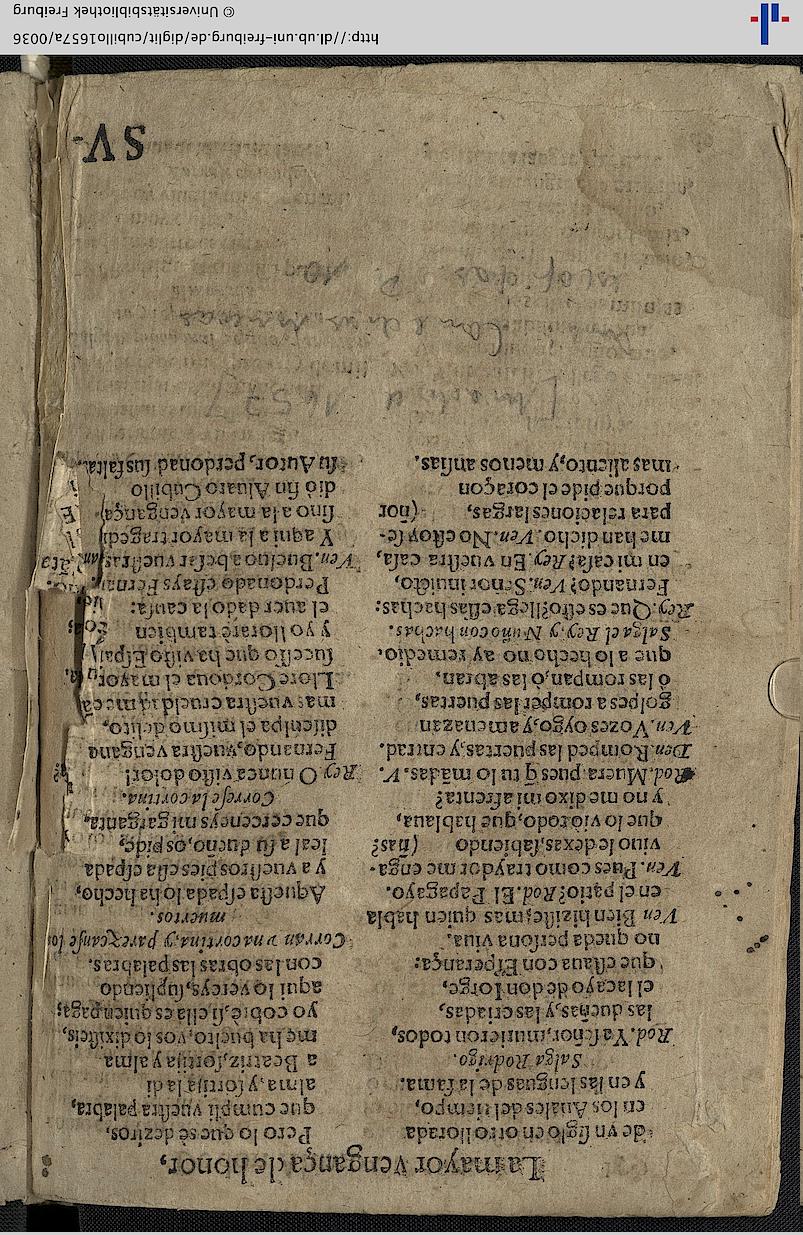 La mayor vengança de honor,
de vn siglo en otro llorada
en los Anales del tiempo,
y en las lenguas de la fama:
Salga Rodrigo.
Rod. Ya señor, murieron todos,
las dueñas, y las criadas,
el lacayo de don Iorge,
que estaua con Esperança:
no queda persona viua.
Ven Bien hiziste; mas quien habla
en el patio? Rod. El Papagayo.
Ven. Pues como traydor me enga-
vino le dexas, sabiendo (ñas?
que lo viò todo, que hablaua,
y no me dixo mi afrenta?
Rod. Muera pues q̃ tu lo mãdas. V.
Den. Romped las puertas, y entrad.
Ven. Vozes oygo, y amenazan
golpes a romper las puertas,
ò las rompan, ò las abran,
que a lo hecho no ay remedio.
Salga el Rey, y Nuño con hachas.
Rey. Que es esto? llega essas hachas:
Fernando? Ven. Señor inuicto,
en mi casa? Rey. En vuestra casa,
me han dicho. Ven. No estoy se-
para relaciones largas, (ñor
porque pide el coraçon
mas aliento, y menos ansias.
Pero lo que sè deziros,
que cumplì vuestra palabra,
alma, y sortija la di
a Beatriz, sortija y alma
me ha buelto, vos lo dixisteis,
yo cobrè, si ella es quien paga;
aqui lo vereys, supliendo
con las obras las palabras.
Corran vna cortina, y parezcanse los
muertos.
Aquesta espada lo ha hecho,
y a vuestros pies esta espada
leal a su dueño, os pide,
que cerceneys mi garganta,
Corrase la cortina.
Rey O nunca visto dolor!
Fernando, vuestra vengança
disculpa el mismo delito,
mas vuestra crueldad
Llore Cordoua el mayor
sucesso que ha visto España
y yo llorarè tambien
el auer dado la causa:
Perdonado estays
Ven. Bueluo a besar vuestras
Y aqui a la mayor tragedia
fino a la mayor vengança
diò fin Aluaro Cubillo
su Autor, perdonad sus faltas.
1657
SV-
http://dl.ub.uni-freiburg.de/diglit/cubillo1657a/0036
© Universitätsbibliothek Freiburg